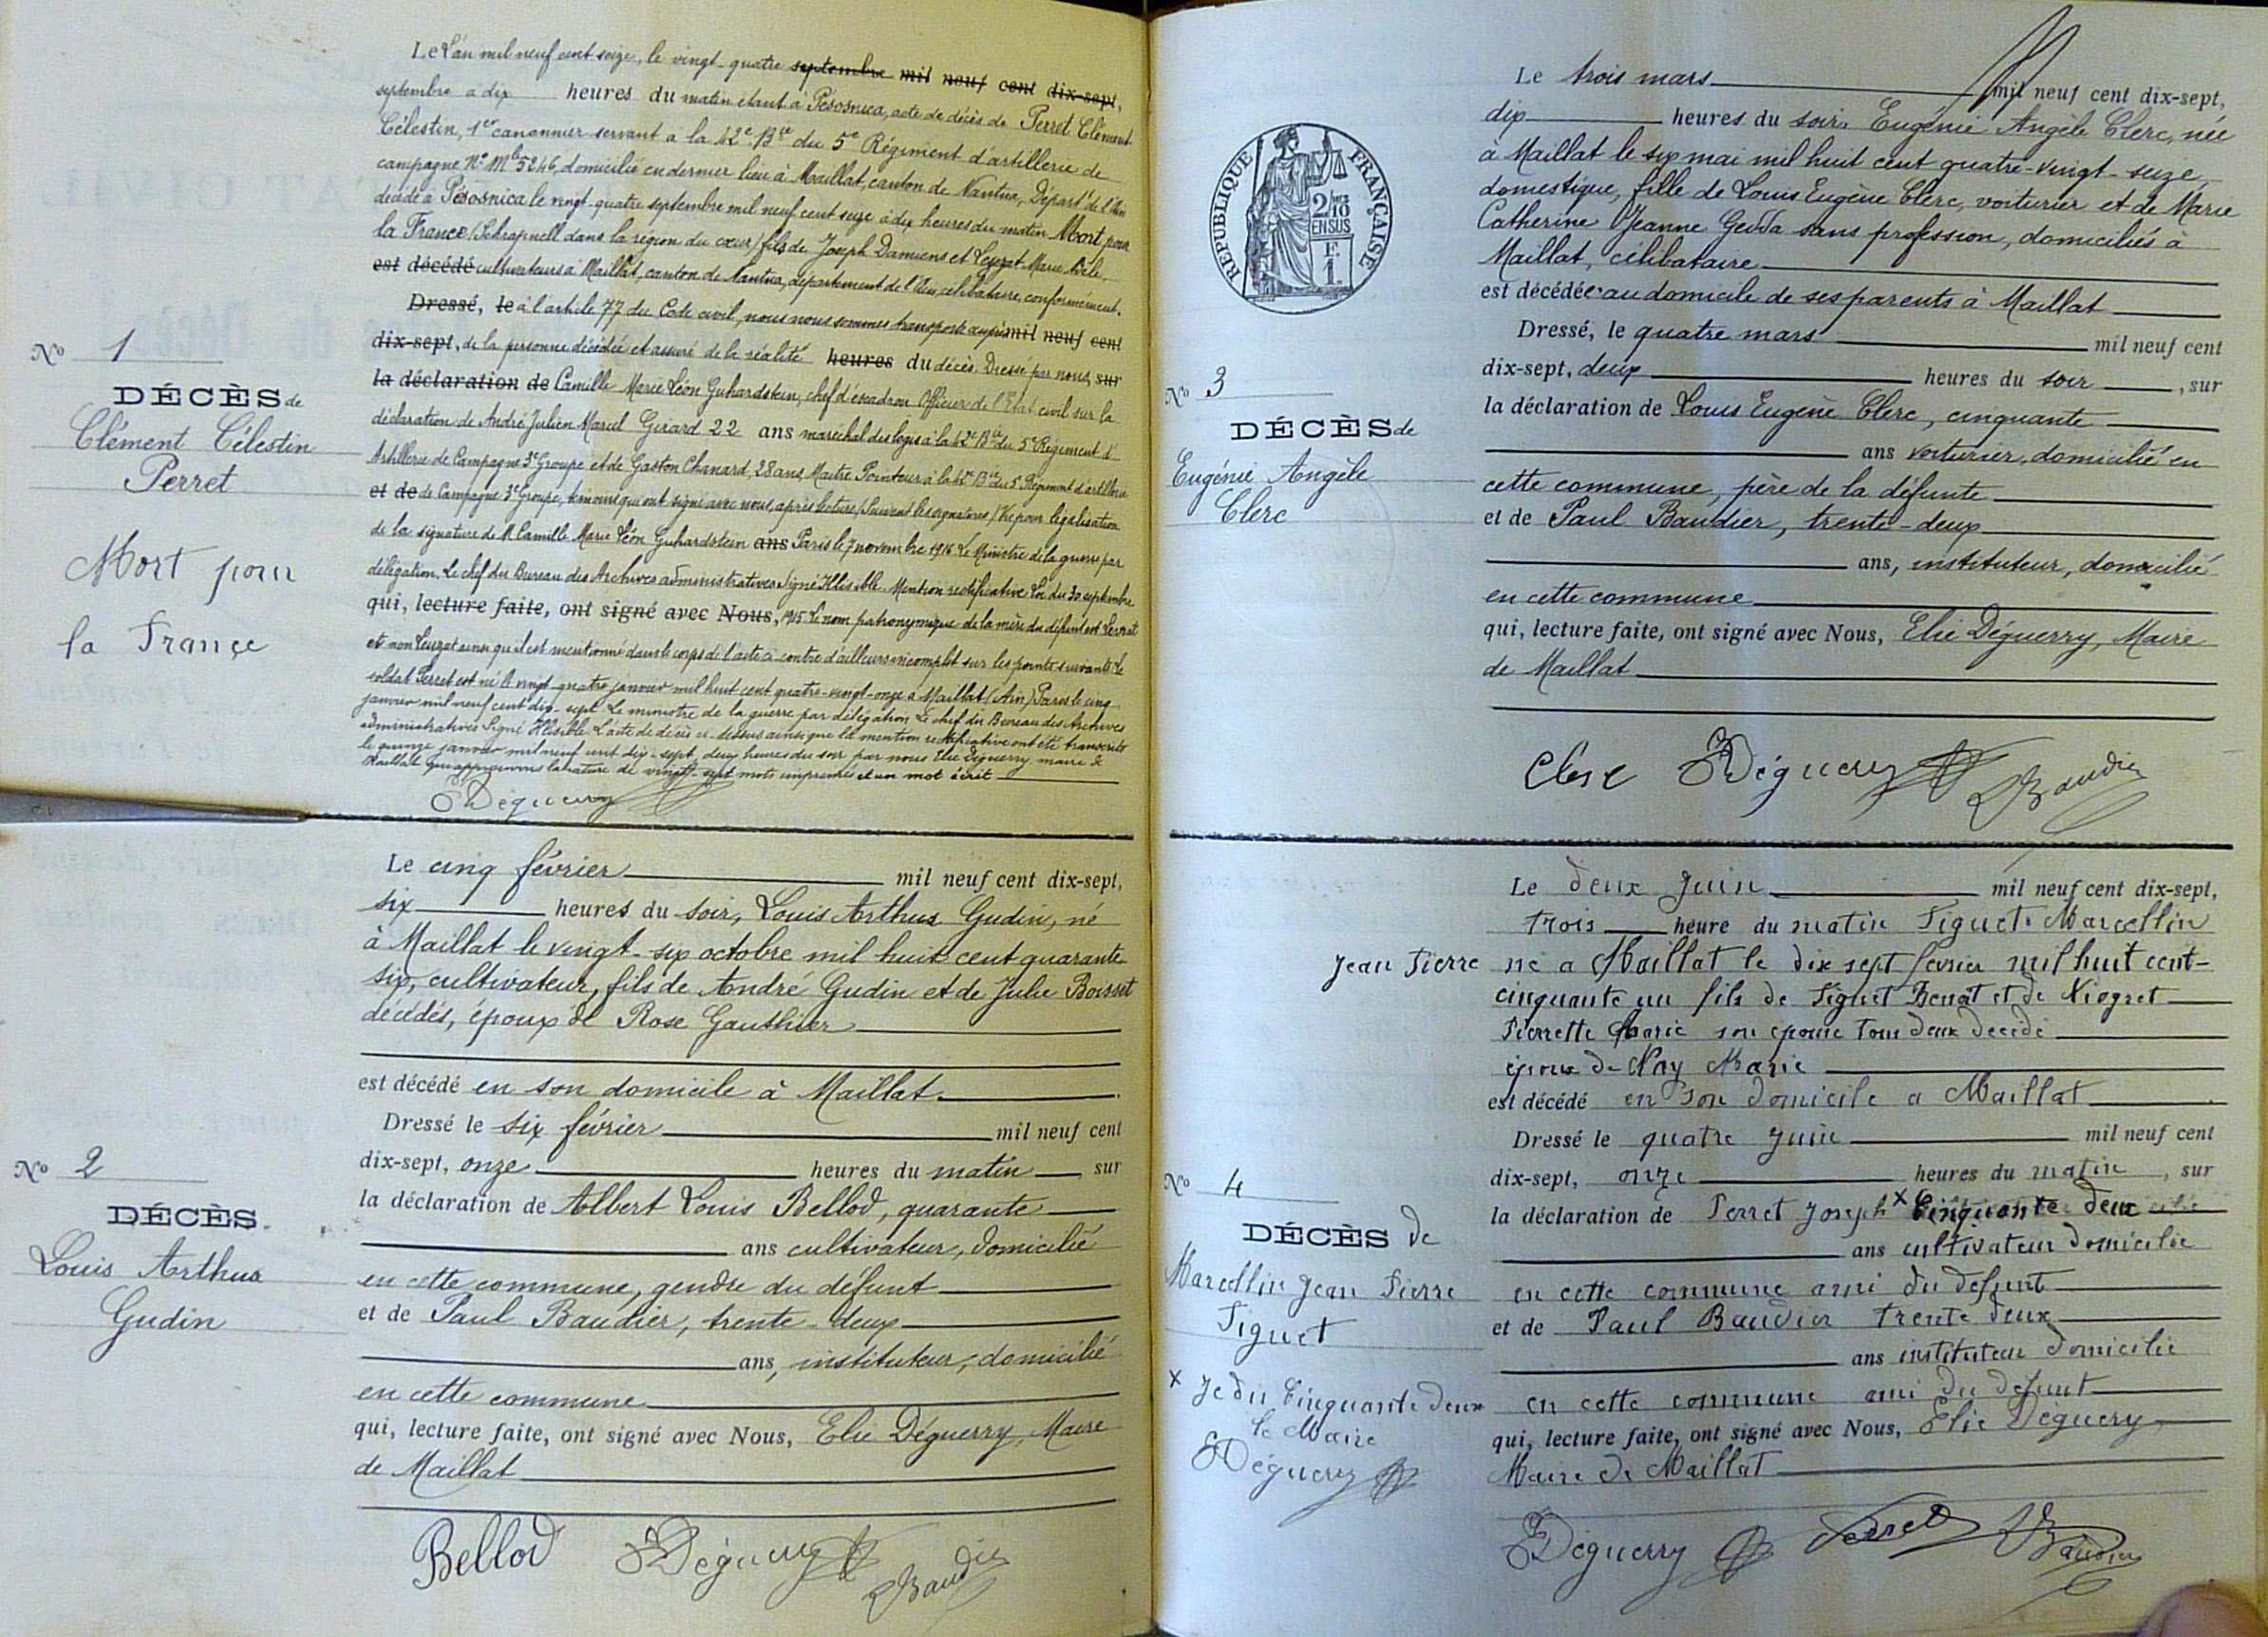 Le L'an mil neuf cent seize, le vingt-quatre septembre mil neuf cent dix-sept,
septembre à dix heures du matin étant à Pésosnica, acte de décès de Perret Clément
Célestin, 1er canonnier servant a la 42e Bie du 5e Régiment d'artillerie de
campagne No Mle 5246, domicilié en dernier lieu à Maillat, canton de Nantua, Départt de l'Ain
décédé à Pésosnica le vingt-quatre septembre mil neuf cent seize à dix heures du matin Mort pour
la France (Schrapnell dans la région du cœur) fils de Joseph Damiens et Leyzat Marie
est décédé cultivateurs à Maillat, canton de Nantua, département de l'Ain, célibataire, conformément
Dressé, le à l'article 77 du Code civil, nous nous sommes transporté auprès mil neuf cent
dix-sept, de la personne décédée et assuré de la réalité heures du décès. Dressé par nous, sur
la déclaration de Camille Marie Léon Guhardstein, chef d'escadron Officier de l'Etat civil sur la
déclaration de André Julien Marcel Girard 22 ans maréchal des logis à la 42e Bie du 5e Régiment d'
Artillerie de Campagne 3e Groupe et de Gaston Chanard, 28 ans, Maître Pointeur à la 42e Bie du 5e Régiment d'artillerie
et de de Campagne 3e Groupe, témoins qui ont signé avec nous, après lecture (Suivent les signatures) Vu pour légalisation
de la signature de M Camille Marie Léon Guhardstein ans Paris le 7 novembre 1916 Le Ministre de la guerre par
délégation, Le chef du Bureau des Archives administratives Signé Illisible. Mention rectificative Loi du 30 septembre
qui, lecture faite, ont signé avec Nous, 1915 Le nom patronymique de la mère du défunt est
et non Leyzat ainsi qu'il est mentionné dans le corps de l'acte ci-contre d'ailleurs incomplet sur les points suivants Le
soldat Perret est né le vingt-quatre janvier mil huit cent quatre-vingt-onze à Maillat (Ain) Paris le cinq
janvier mil neuf cent dix-sept Le ministre de la guerre par délégation Le chef du Bureau des Archives
administratives Signé Illisible. L'acte de décès ci-dessus ainsi que la mention rectificative ont été transcrits
le quinze janvier mil neuf cent dix-sept, deux heures du soir par nous Elie Déguerry maire de
Maillat qui approuvons la rature de vingt-sept mots imprimés et un mot écrit
EDéguerry
No 1
DÉCÈS de
Clément Célestin
Perret
Mort pour
la France
Le cinq février mil neuf cent dix-sept,
six heures du soir, Louis Arthus Gudin, né
à Maillat le vingt-six octobre mil huit cent quarante
six, cultivateur, fils de André Gudin et de Julie Boisset
décédés, époux de Rose Gauthier
est décédé en son domicile à Maillat.
Dressé le six février mil neuf cent
dix-sept, onze heures du matin, sur
la déclaration de Albert Louis Bellod, quarante
ans cultivateur, domicilié
en cette commune, gendre du défunt
et de Paul Baudier, trente-deux
ans, instituteur, domicilié
en cette commune
qui, lecture faite, ont signé avec Nous, Elie Déguerry, Maire
de Maillat
Bellod EDéguerry Baudier
No 2
DÉCÈS
Louis Arthus
Gudin
RÉPUBLIQUE FRANÇAISE
2/10
EN SUS
F.
1.
Le trois mars mil neuf cent dix-sept,
dix heures du soir, Eugénie Angèle Clerc, née
à Maillat le six mai mil huit cent quatre-vingt-seize,
domestique, fille de Louis Eugène Clerc, voiturier et de Marie
Catherine Jeanne Gedda sans profession, domiciliés à
Maillat, célibataire
est décédée au domicile de ses parents à Maillat
Dressé, le quatre mars mil neuf cent
dix-sept, deux heures du soir, sur
la déclaration de Louis Eugène Clerc, cinquante
ans voiturier, domicilié en
cette commune, père de la défunte
et de Paul Baudier, trente-deux
ans, instituteur, domicilié
en cette commune
qui, lecture faite, ont signé avec Nous, Elie Déguerry, Maire
de Maillat
Clerc EDéguerry Baudier
No 3
DÉCÈS de
Eugénie Angèle
Clerc
Le deux Juin mil neuf cent dix-sept,
trois heure du matin Piguet Marcellin
Jean Pierre né a Maillat le dix sept fevrier mil huit cent-
cinquante un fils de Piguet Benoît et de Niogret
Pierrette Marie son epouse tous deux decedé
époux de Nay Marie
est décédé en son domicile a Maillat
Dressé le quatre Juin mil neuf cent
dix-sept, onze heures du matin, sur
la déclaration de Perret Joseph x Cinquante deux
ans cultivateur domicilié
en cette commune ami du defunt
et de Paul Baudier trente deux
ans instituteur domicilié
en cette commune ami du defunt
qui, lecture faite, ont signé avec Nous, Elie Déguerry
Maire de Maillat
EDéguerry Perret Baudier
No 4
DÉCÈS de
Marcellin Jean Pierre
Piguet
x Je dis Cinquante deux
le Maire
EDéguerry